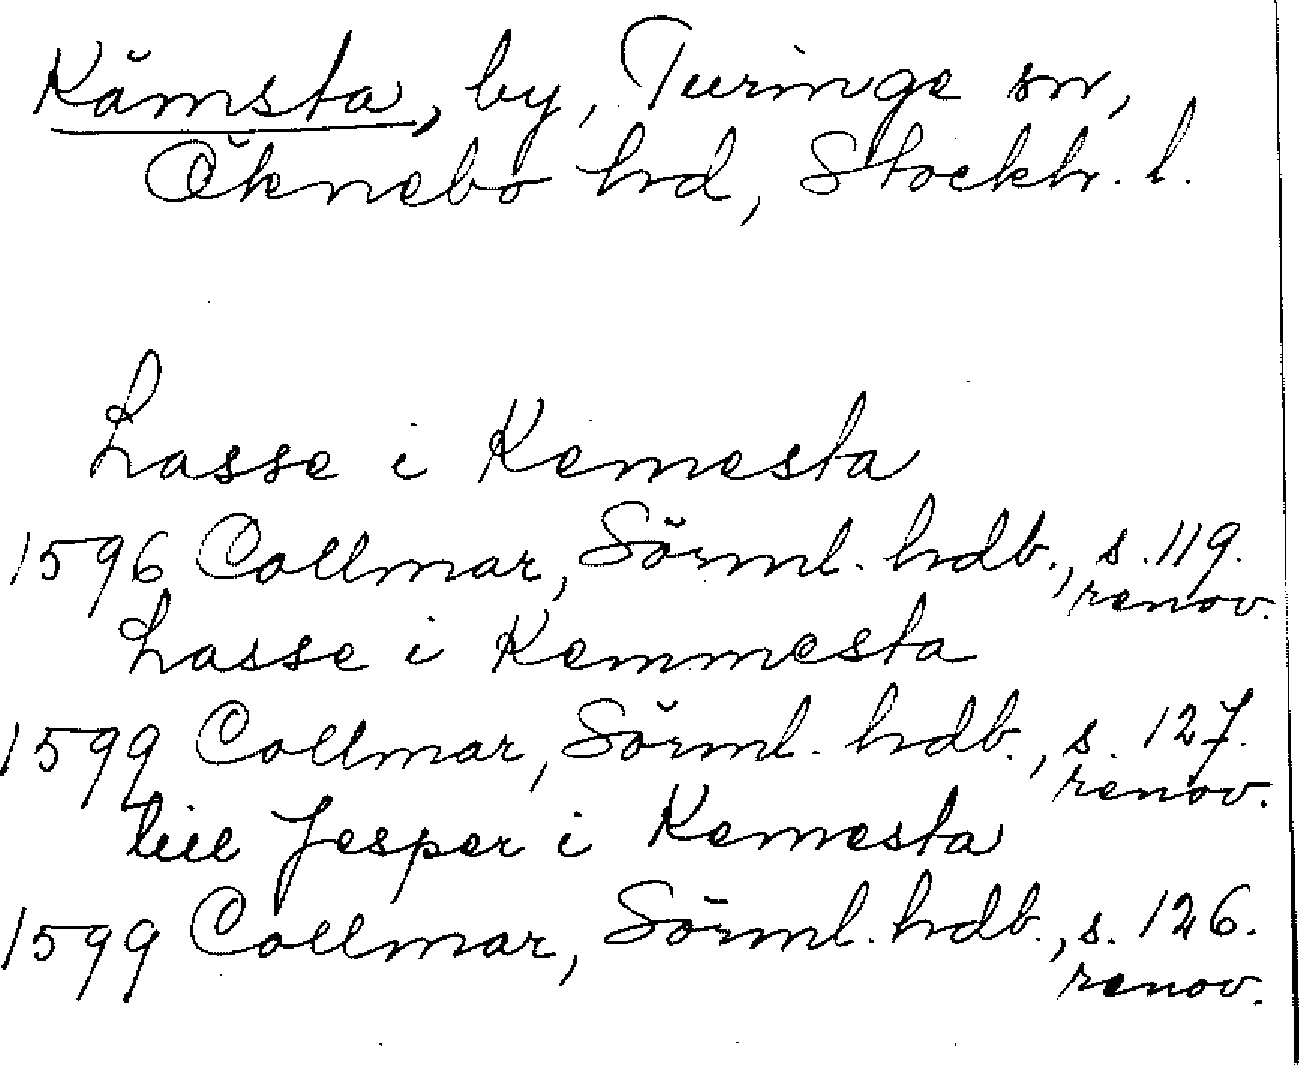 Kämsta, by, Turinge sn,
Öknebo hd, Stockh. l.
Lasse i Kemesta
1596 Collmar, Sörml. hdb., s. 119.
renov.
Lasse i Kemmesta
1599 Collmar, Sörml. hdb., s. 127.
renov.
lill Jesper i Kemesta
1599 Collmar, Sörml. hdb., s. 126.
renov.